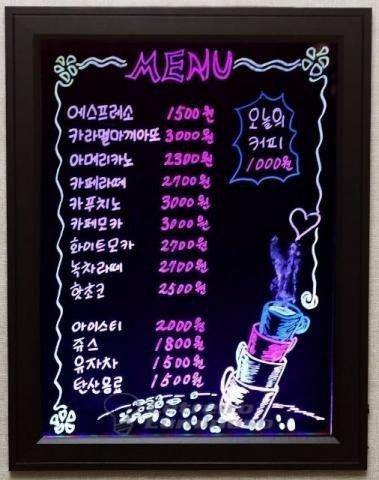 MENU
에스프레소 1500원
카라멜마끼아또 3000원
아메리카노 2300원
카페라떼 2700원
카푸치노 3000원
카페모카 3000원
화이트모카 2700원
녹차라떼 2700원
핫쵸코 2500원
아이스티 2000원
쥬스 1800원
유자차 1500원
탄산음료 1500원
오늘의
커피
1000원